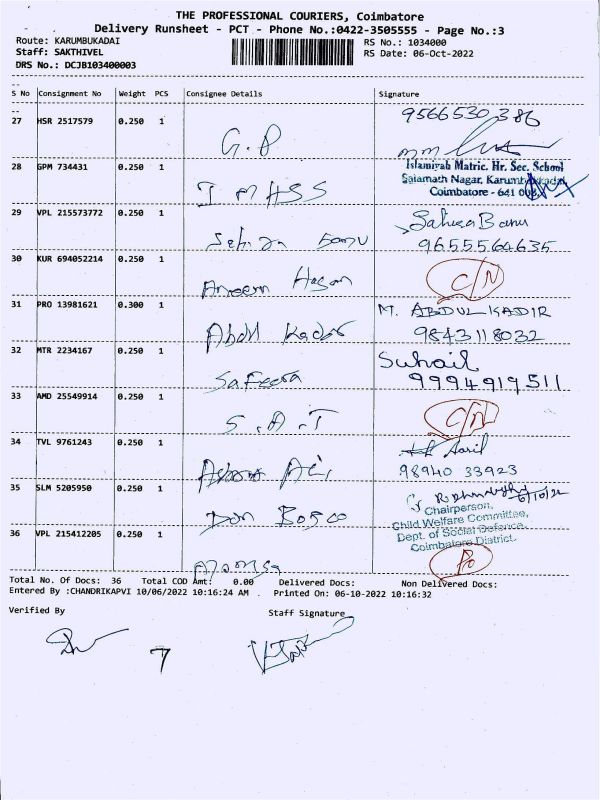 THE PROFESSIONAL COURIERS, Coimbatore
Delivery Runsheet - PCT - Phone No.:0422-3505555 - Page No.:3
Route: KARUMBUKADAI
RS No.: 1034000
Staff: SAKTHIVEL
RS Date: 06-Oct-2022
DRS No.: DCJB103400003
S No Consignment No Weight PCS Consignee Details Signature
27 HSR 2517579 0.250 1 9566530386
G.P
28 GPM 734431 0.250 1 Islamiyah Matric. Hr. Sec. School
Salamath Nagar, Karumbukkadai
Coimbatore - 641 008.
I M HSS
29 VPL 215573772 0.250 1 Sahira Banu
9655564635
30 KUR 694052214 0.250 1 C/N
Hasan
31 PRO 13981621 0.300 1 M. ABDUL KADIR
Abdul Kadar 9843118032
32 MTR 2234167 0.250 1 Suhail
Safeera 9994919511
33 AMD 25549914 0.250 1 C/N
S.A.T
34 TVL 9761243 0.250 1
Ali 98940 33923
35 SLM 5205950 0.250 1 6/10/22
Don Bosco Chairperson,
Child Welfare Committee,
Dept. of Social Defence,
Coimbatore District.
36 VPL 215412205 0.250 1
Total No. Of Docs: 36 Total COD Amt: 0.00 Delivered Docs: Non Delivered Docs:
Entered By :CHANDRIKAPVI 10/06/2022 10:16:24 AM . Printed On: 06-10-2022 10:16:32
Verified By Staff Signature
7